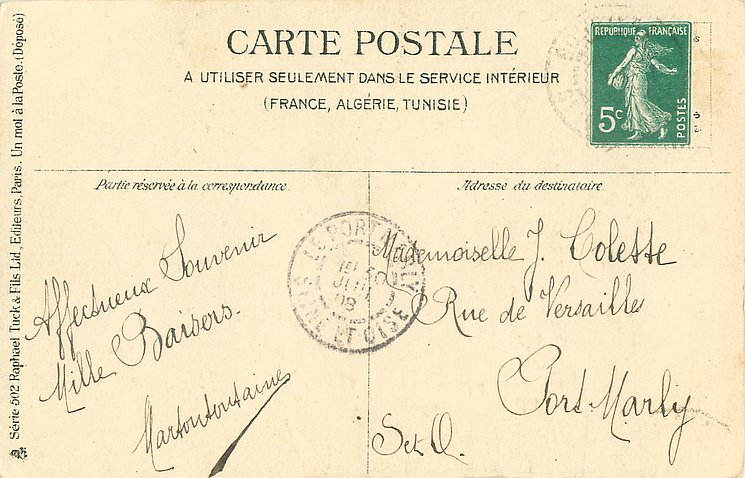 CARTE POSTALE
A UTILISER SEULEMENT DANS LE SERVICE INTÉRIEUR
(FRANCE, ALGÉRIE, TUNISIE)
RÉPUBLIQUE FRANÇAISE
5c
POSTES
Série 502 Raphael Tuck & Fils Ltd, Editeurs, Paris. Un mot à la Poste. (Déposé)
Partie réservée à la correspondance
Affectueux Souvenir
Mille Baisers.
Martoutoutaine
Adresse du destinataire
Mademoiselle J. Colette
Rue de Versailles
Port-Marly
S et O.
LE PORT MARLY
30
08
SEINE ET OISE